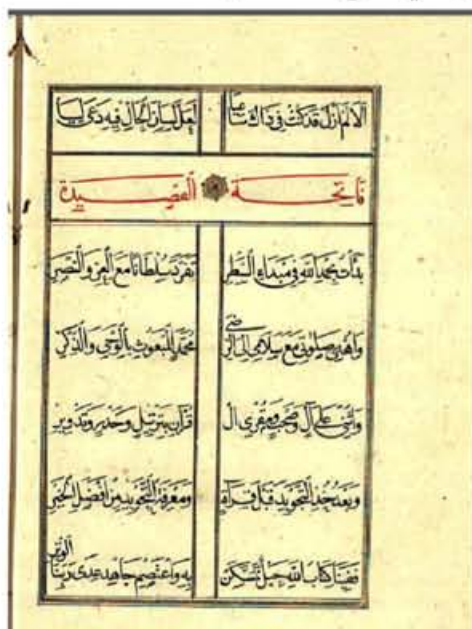 الا لم ازل قد كنت في ذاك لعل لسان الحال فيه دعى
فاتحة القصيدة
بدأت بحمد الله في مبداء السطر تفرد سلطانا مع العز والنصر
واهدي صلوتي مع سلامي الى الرضى محمد المبعوث بالوحي والذكر
واثنى على آل وصحب ومقرئ ال قرآن بترتيل وحدر وتدوير
وبعد خذ التجويد قبل قراة ومعرفة التجويد من افضل الخبر
ففينا كتاب الله حبل تمسكن به واعتصم جاهد